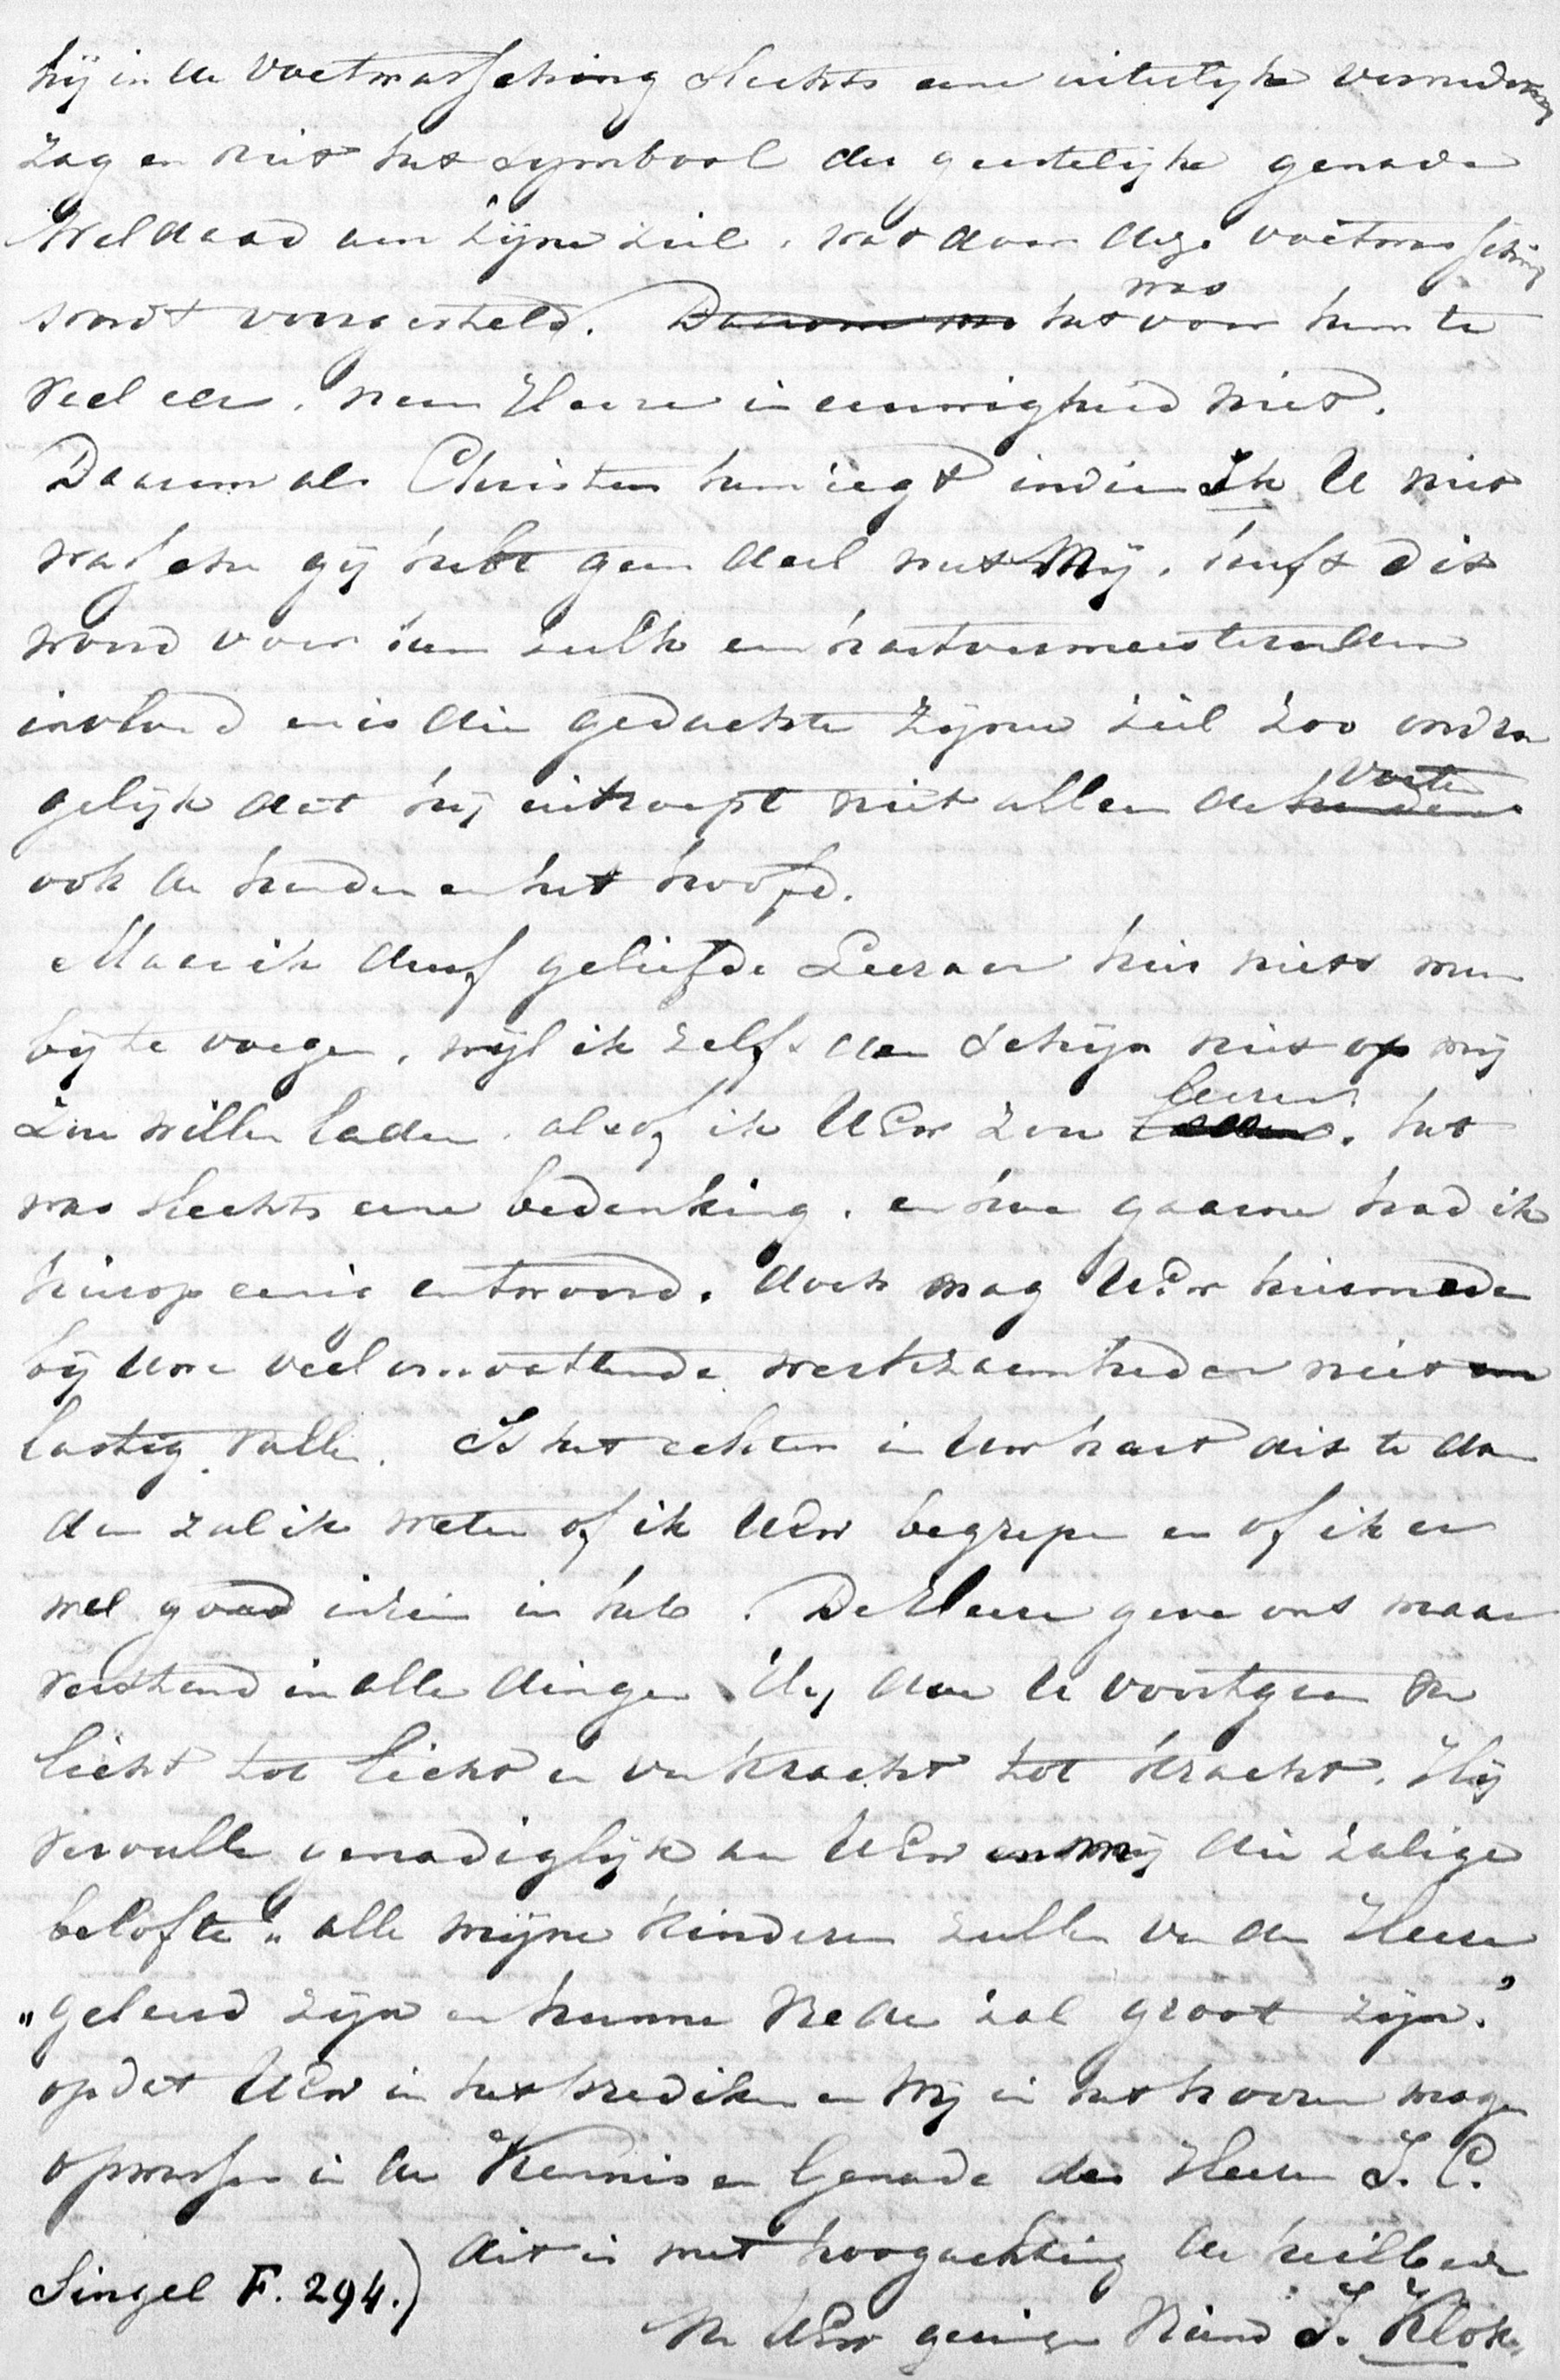 hij in de voetwassching slechts eene uiterlijke vernedering
zag en niet het symbool der geestelijke genade
weldaad aan zijne ziel, wat door deze voetwassching
wordt voorgesteld. Daarom was het was voor hem te
veel eer, neen Heere in eeuwigheid niet.
Daarom als Christus hem zegt indien Ik U niet
wassche gij hebt geen deel met Mij, heeft dit
woord voor hem zulk een hartvermeesterenden
invloed en is die gedachte zijner ziel zoo ondra
gelijk dat hij uitroept niet alleen de handen voeten
ook de handen en het hoofd.
Maar ik durf geliefde Leeraar hier niets meer
bij te voegen, wijl ik zelfs den schijn niet op mij
zou willen laden alsof ik UEw zou leeren. het
was slechts eene bedenking, en hoe gaarne had ik
hierop eenig antwoord. doch mag UEw hiermede
bij Uwe veel omvattende werkzaamheden niet
lastig vallen. Is het echter in Uw hart dit te doen
dan zal ik weten of ik UEw begrepen en of ik er
wel goed inzien in heb. De Heere geve ons maar
verstand in alle dingen Hij doe U voortgaan van
licht tot licht en van kracht tot kracht. Hij
vervulle genadiglijk aan UEw en mij die zalige
belofte „alle mijne kinderen zullen van den Heere
„geleerd zijn en hunne vrede zal groot zijn."
opdat UEw in het prediken en wij in het hooren mogen
opwassen in de Kennis en Genade des Heeren J. C.
dit is met hoogachting de heilbede
Singel F. 294.)
van UEw geringen vriend J. Klok